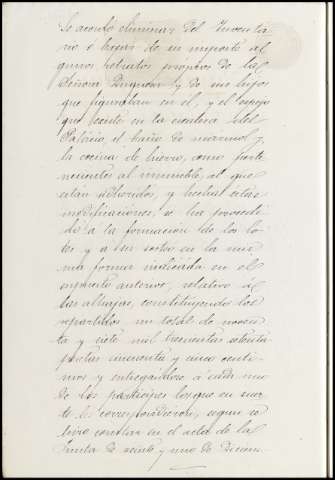 Se acordó eliminar del Inventa-
rio o bajar de su importe al
gunos retratos propios de la
Señora Duquesa y de sus hijos
que figuraban en él, y el espejo
que existe en la escalera del
Palacio, el baño de mármol y
la cocina de hierro, como perte
necientes al inmueble, al que
están adheridos, y hechas estas
modificaciones, se ha procedi
do á la formación de los lo-
tes y a su sorteo en la mis
ma forma indicada en el
supuesto anterior, relativo á
las alhajas, constituyendo los
repartidos un total de noven
ta y siete mil trescientas setenta
pesetas cincuenta y cinco centi
mos y entregándose a cada uno
de los partícipes los que en suer
te le correspondieron, segun se
hizo constar en el acta de la
Junta de veinte y uno de Diciem-